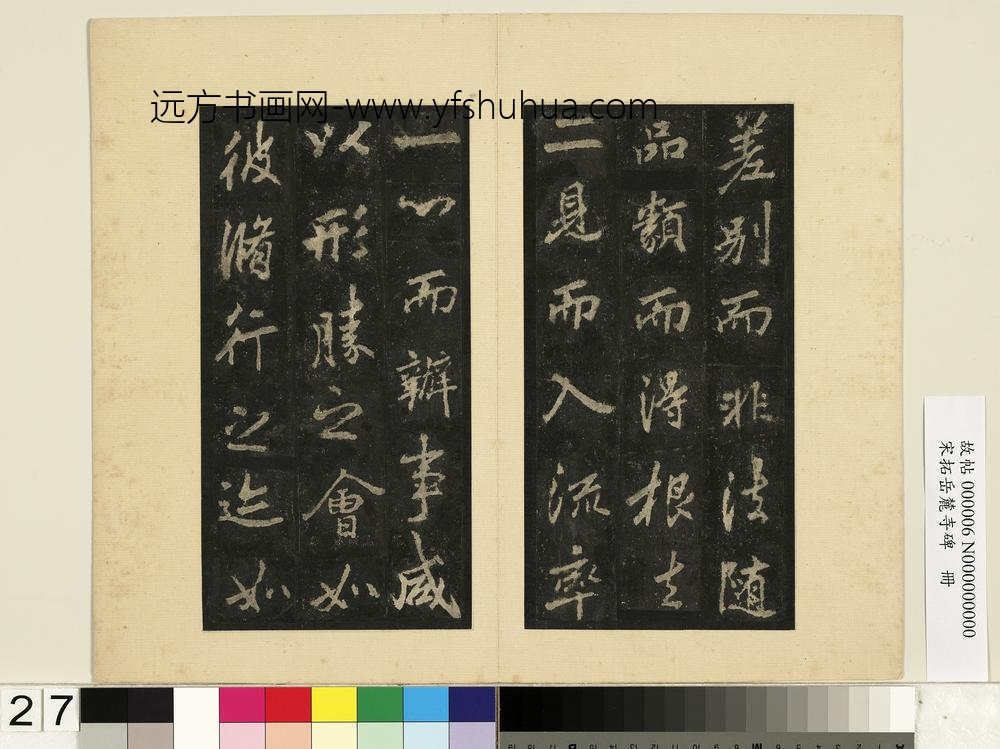 远方书画网-www.yfshuhua.com
差别而非法随
品類而得根去
二見而入流率
一心而辦事咸
以形勝之會如
彼脩行之迹如
故帖 000006 N000000000
宋拓岳麓寺碑 冊
27